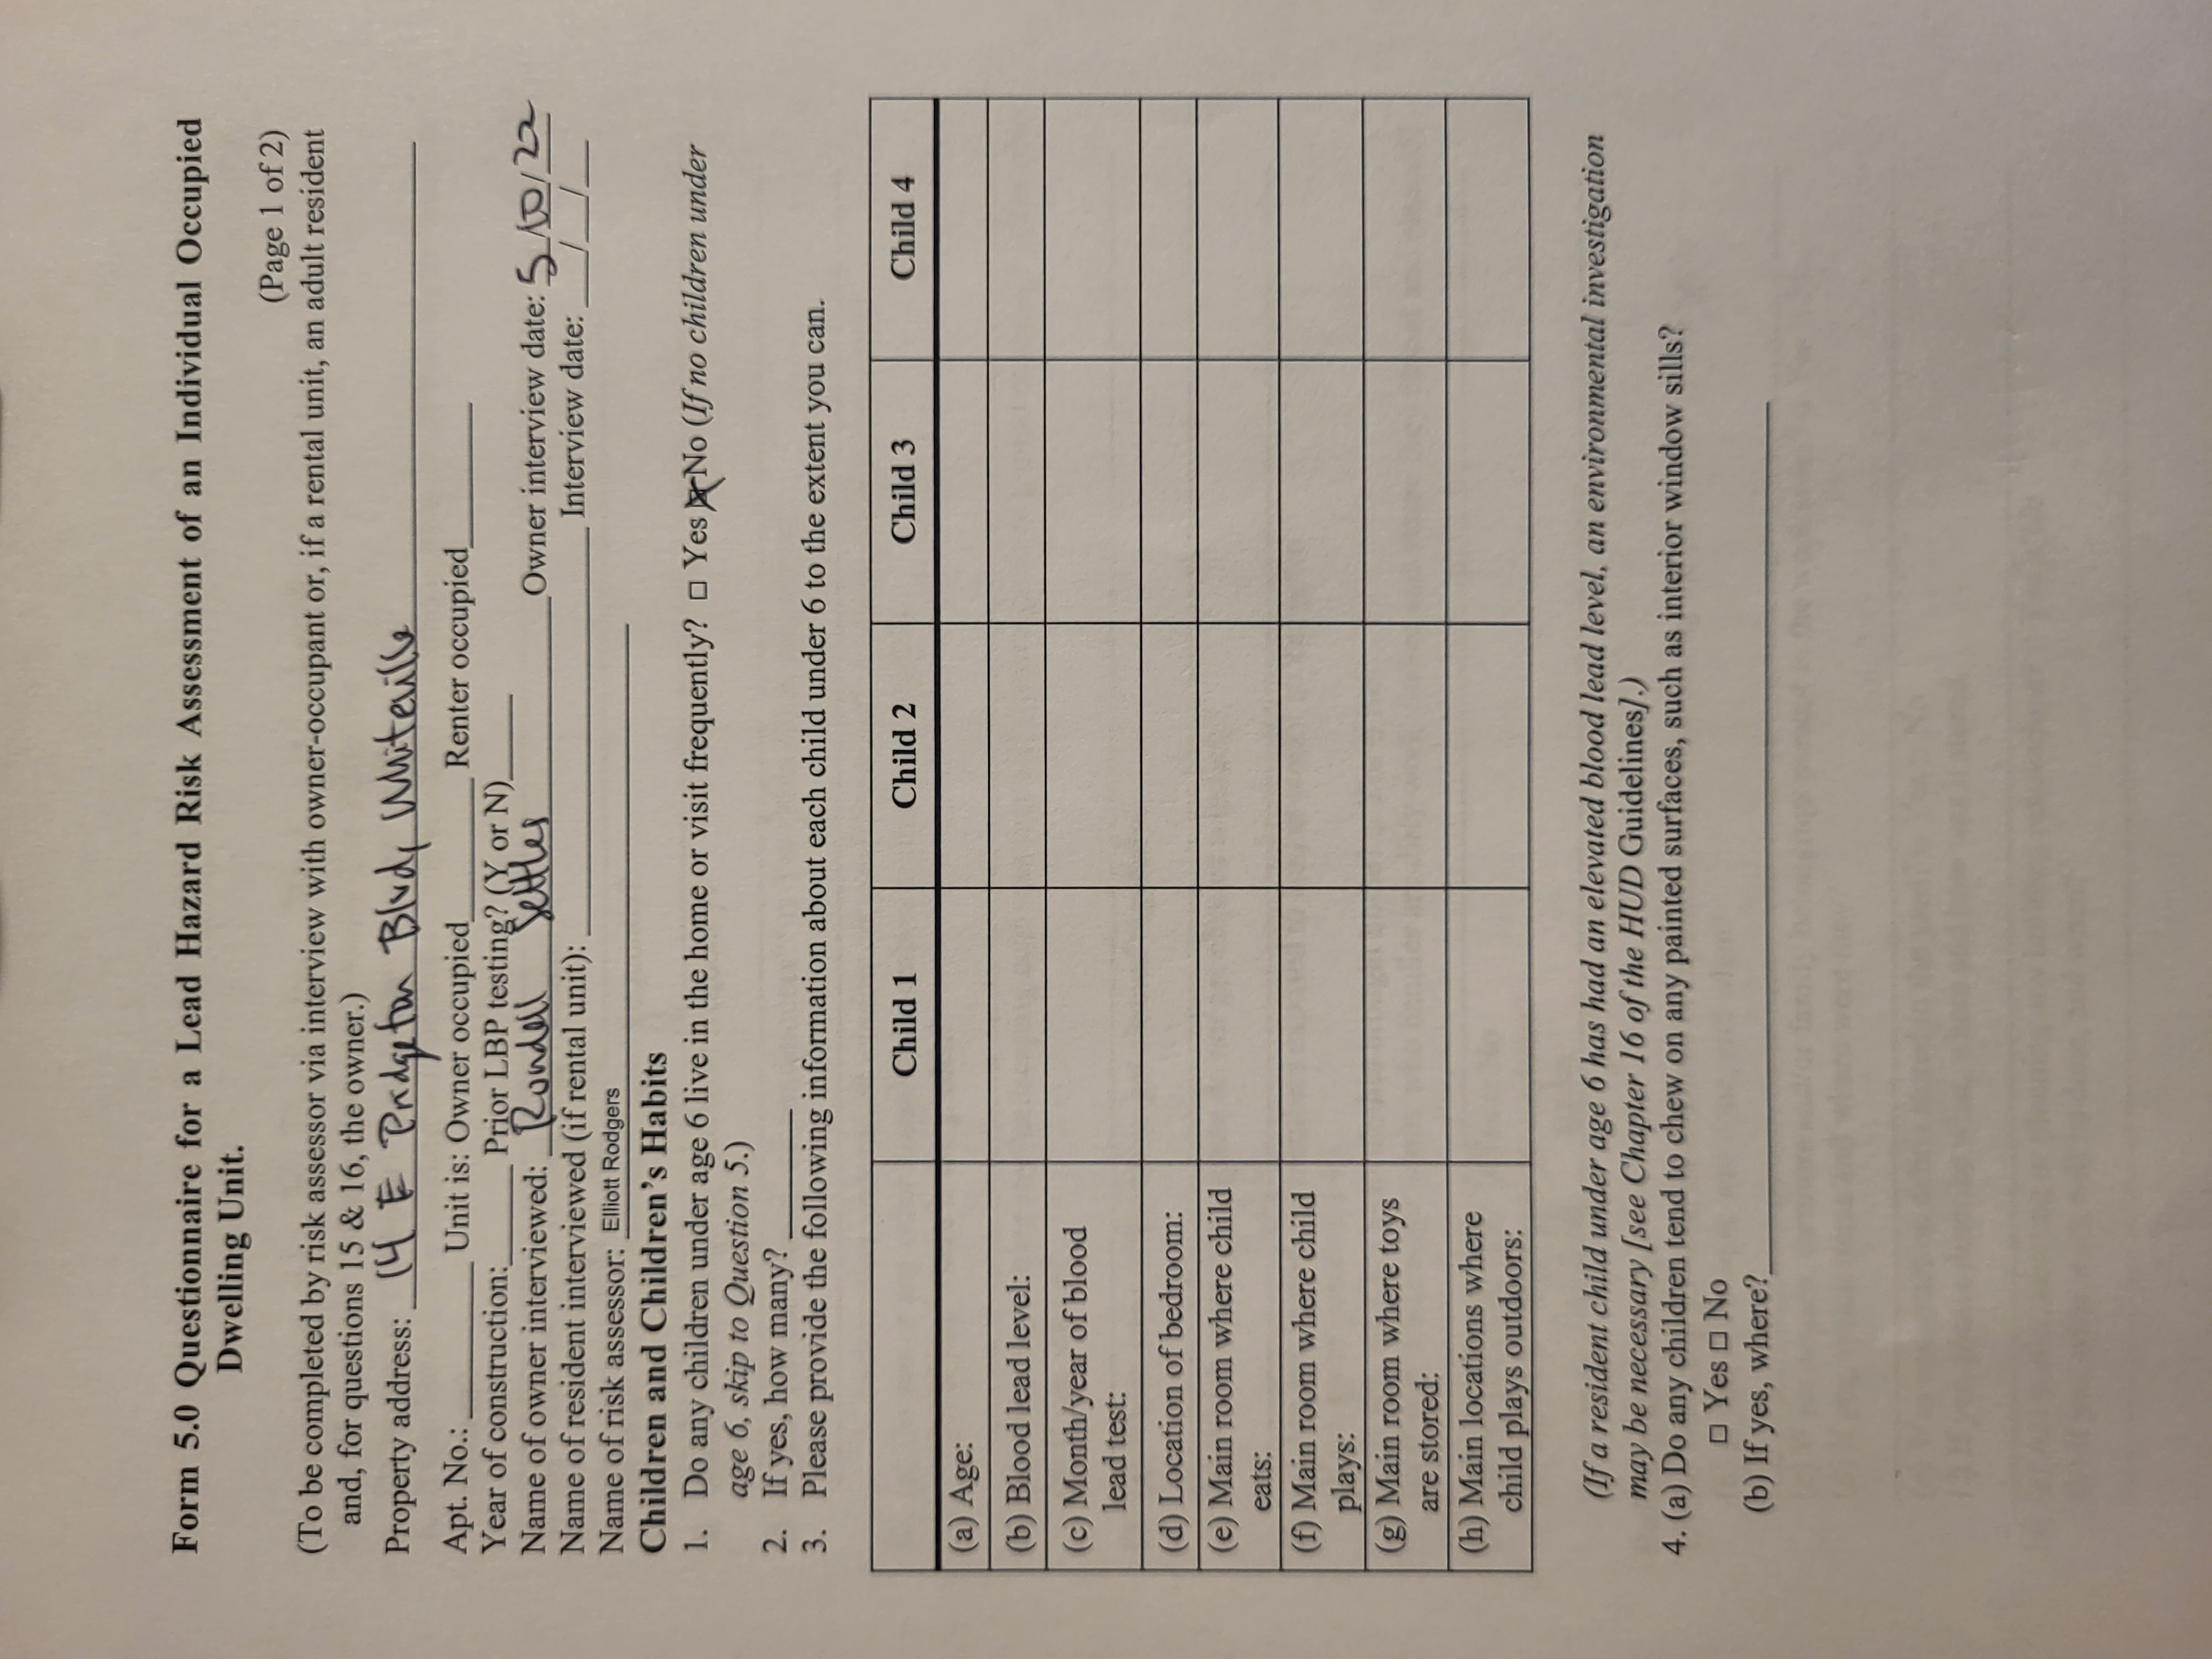 Form 5.0 Questionnaire for a Lead Hazard Risk Assessment of an Individual Occupied
Dwelling Unit.
(Page 1 of 2)
(To be completed by risk assessor via interview with owner-occupant or, if a rental unit, an adult resident
and, for questions 15 & 16, the owner.)
Property address: 14 E Pridgeton Blvd, Whiteville
Apt. No.: ______ Unit is: Owner occupied______ Renter occupied______
Year of construction:______ Prior LBP testing? (Y or N)____
Name of owner interviewed: Rundell Settles Owner interview date: 5/10/22
Name of resident interviewed (if rental unit): ______ Interview date: __/__/__
Name of risk assessor: Elliott Rodgers
Children and Children's Habits
1. Do any children under age 6 live in the home or visit frequently? □ Yes ☒ No (If no children under
age 6, skip to Question 5.)
2. If yes, how many? ______
3. Please provide the following information about each child under 6 to the extent you can.
Child 1 Child 2 Child 3 Child 4
(a) Age:
(b) Blood lead level:
(c) Month/year of blood
lead test:
(d) Location of bedroom:
(e) Main room where child
eats:
(f) Main room where child
plays:
(g) Main room where toys
are stored:
(h) Main locations where
child plays outdoors:
(If a resident child under age 6 has had an elevated blood lead level, an environmental investigation
may be necessary [see Chapter 16 of the HUD Guidelines].)
4. (a) Do any children tend to chew on any painted surfaces, such as interior window sills?
□ Yes □ No
(b) If yes, where?______